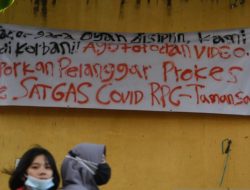 gara-gara Ogah disiplin, Kami
di korban!! Ayo foto dan VIDEO
porkan Pelanggar Prokes
e SATGAS Covid RPG-Tamansa